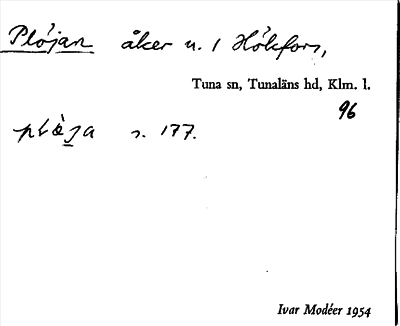 Plöjan åker u. 1 Hökfors,
Tuna sn, Tunaläns hd, Klm. l.
96
s. 177.
Ivar Modéer 1954